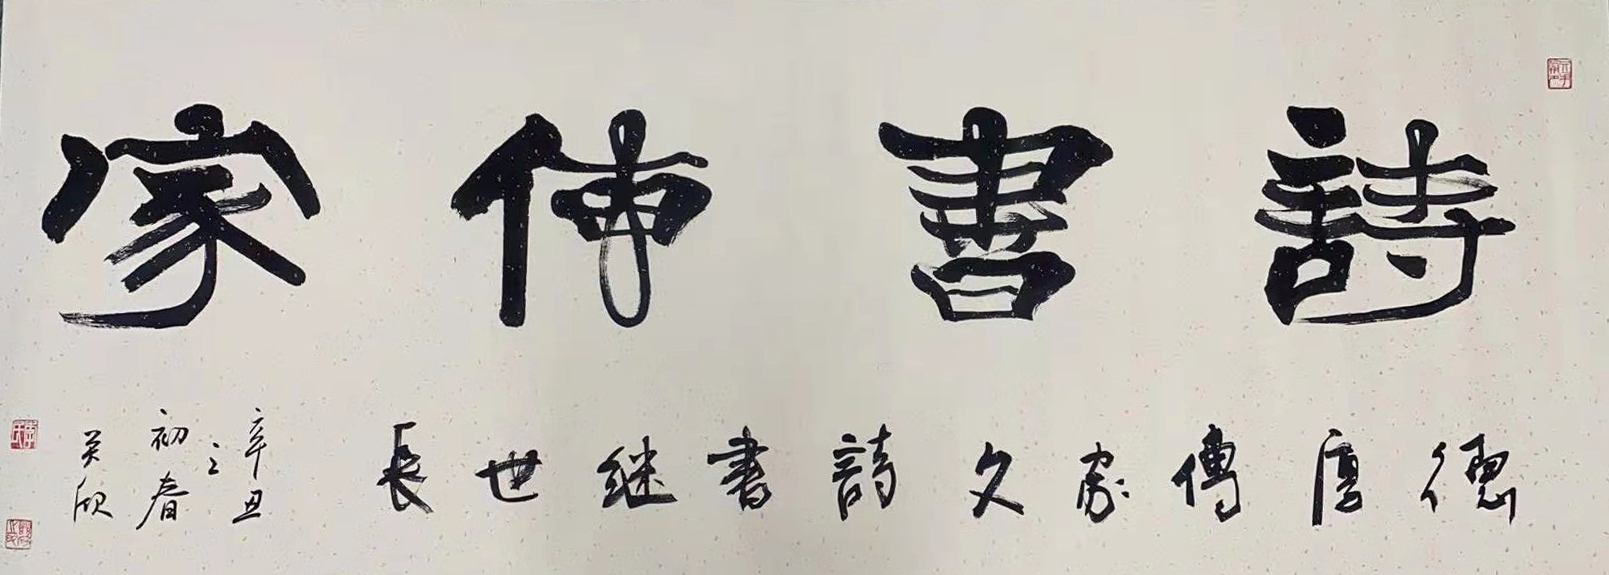 詩書傳家
德厚傳家久詩書继世長
辛丑之
初春
吴欣